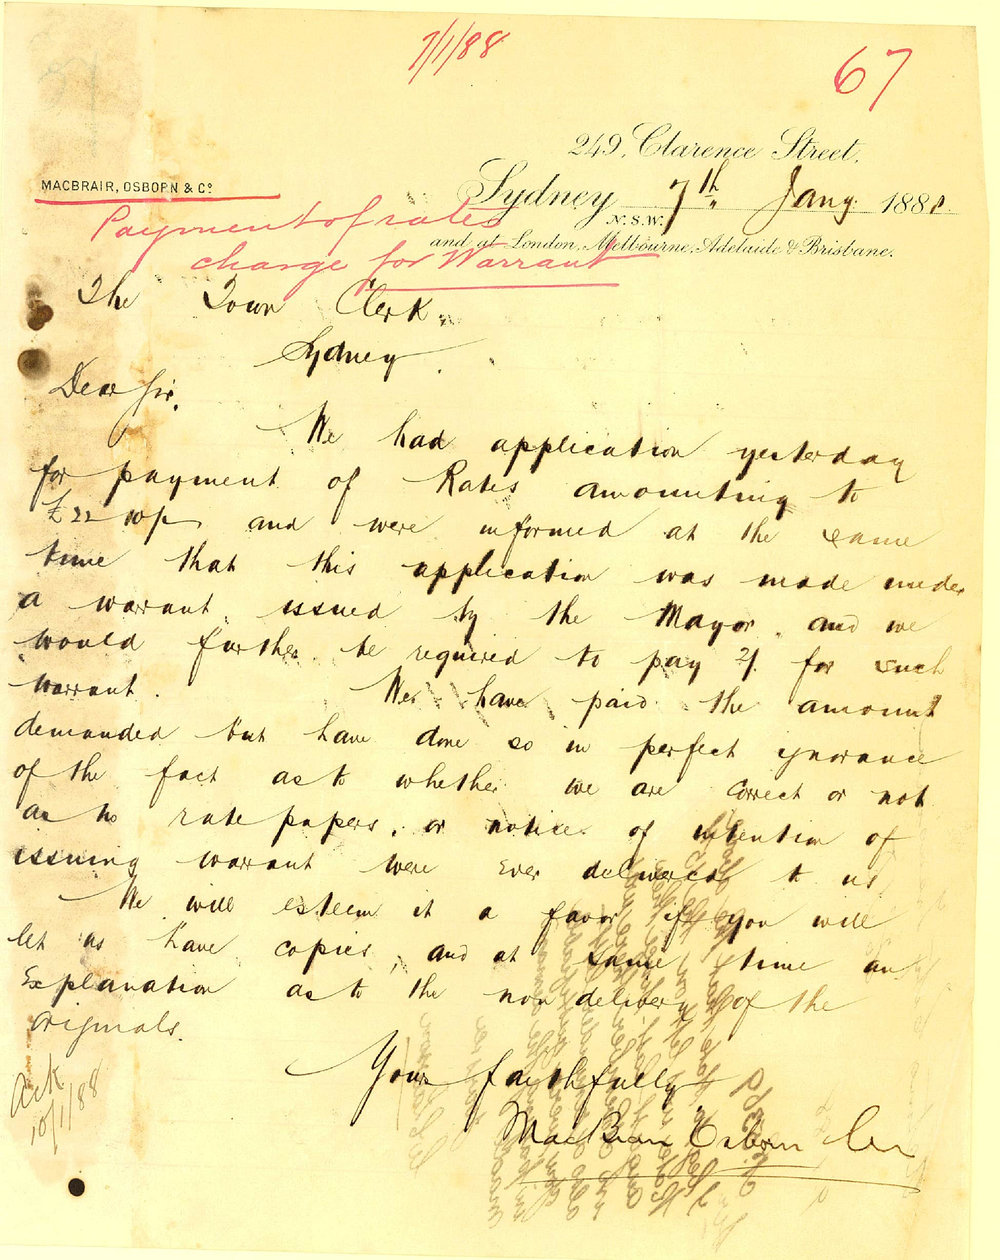 7/1/88
67
249, Clarence Street,
MACBRAIR, OSBORN & Co.
Sydney 7th Jany 1888
N.S.W.
Payment of rates
and at London, Melbourne, Adelaide & Brisbane.
charge for Warrant
The Town Clerk.
Sydney.
Dear Sir,
We had application yesterday
for payment of Rates amounting to
£22 10/- and were informed at the same
time that this application was made under
a warrant issued by the Mayor, and we
would further be required to pay 2/ for such
warrant. We have paid the amount
demanded but have done so in perfect ignorance
of the fact as to whether we are correct or not
as no rate papers, or notice of intention of
issuing warrant were ever delivered to us
We will esteem it a favor if you will
let us have copies, and at same time an
Explanation as to the non delivery of the
originals.
Yours faithfully
MacBrair Osborn & Co
Ack
10/1/88